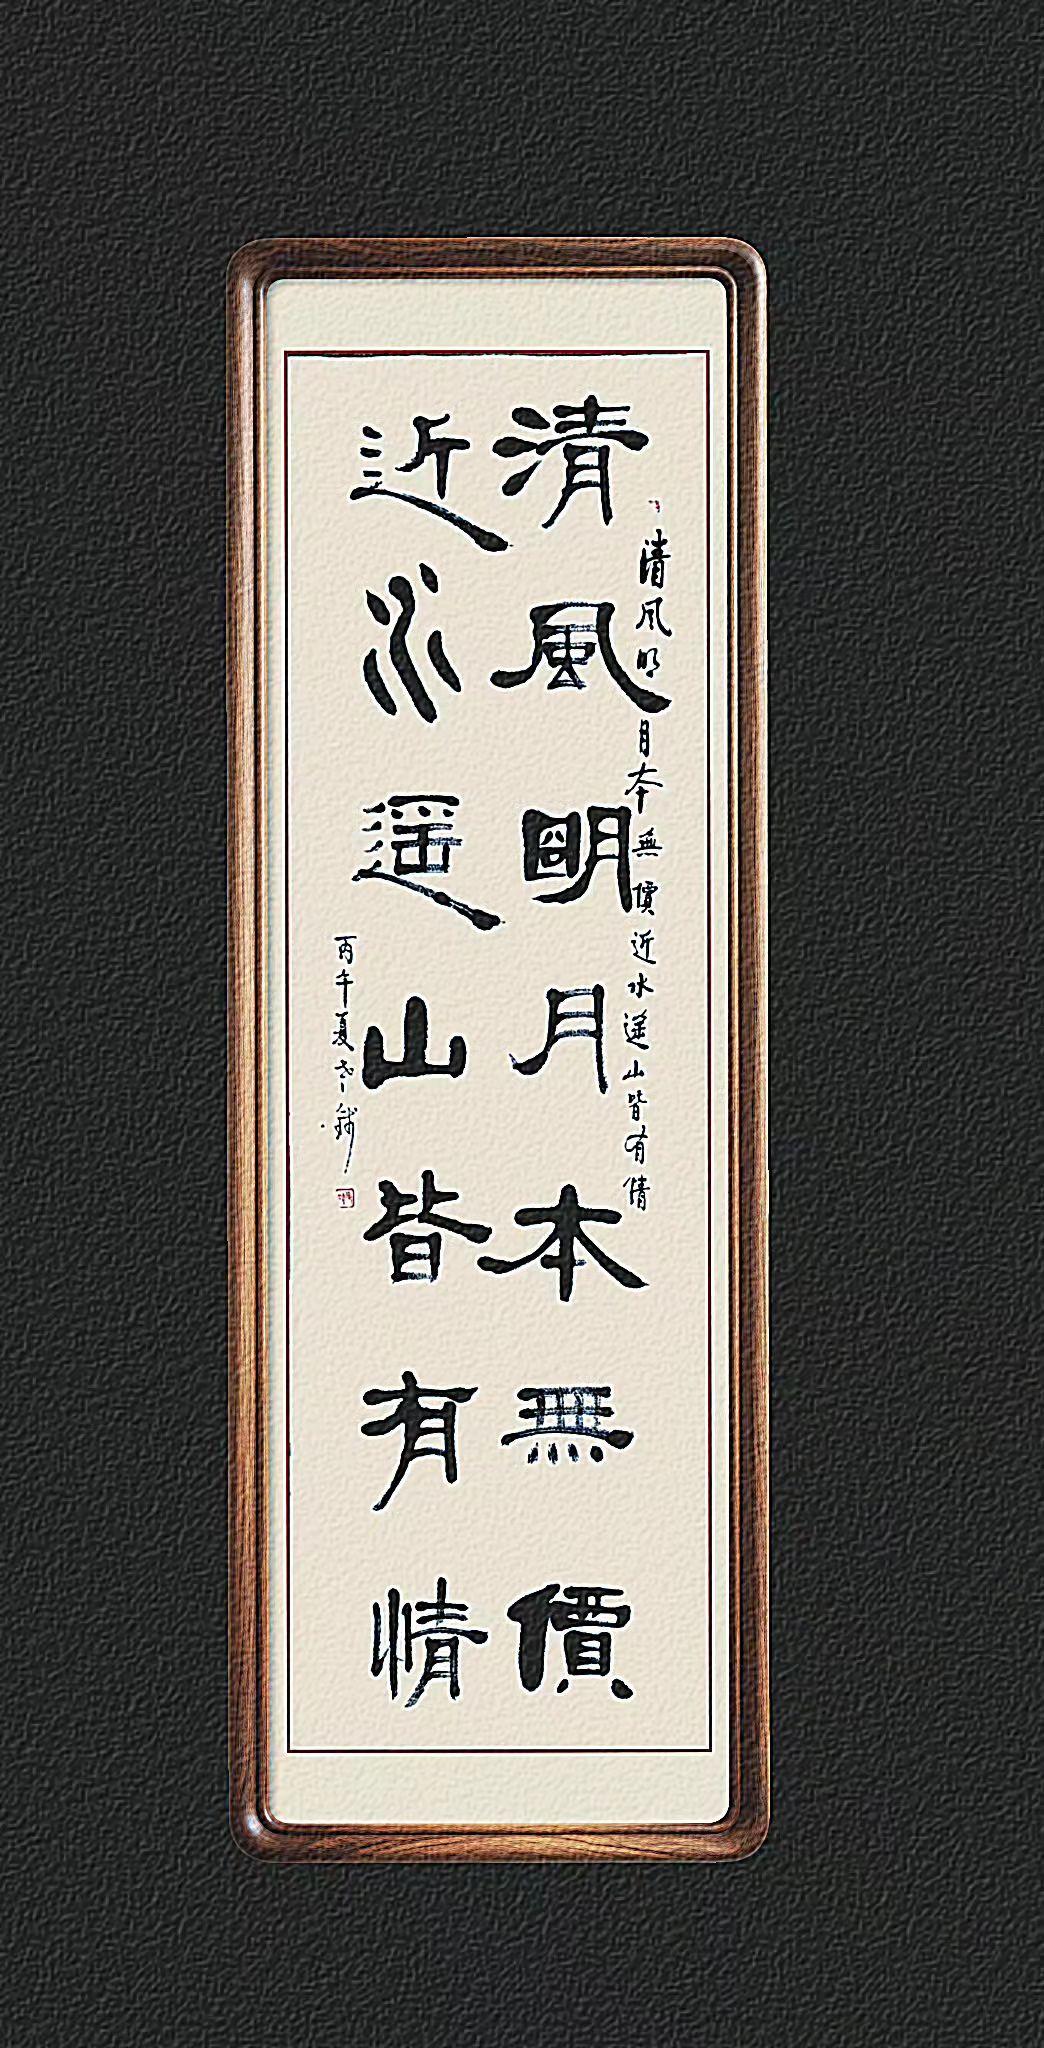 清風明月本無價近水遥山皆有情
清風明月本無價
近水遥山皆有情
丙午夏